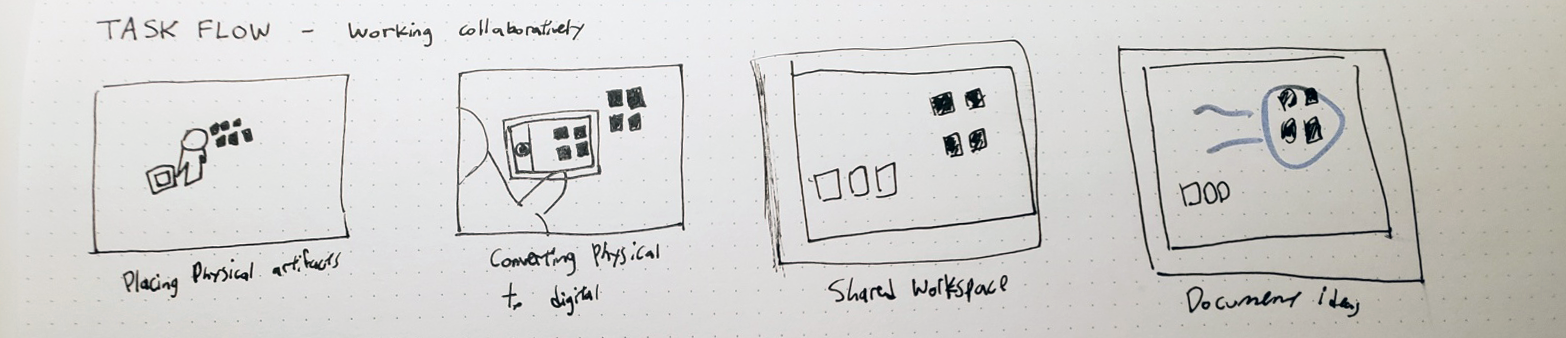 TASK FLOW - Working collaboratively
Placing Physical artifacts
Converting Physical
to digital
Shared Workspace
Document ideas